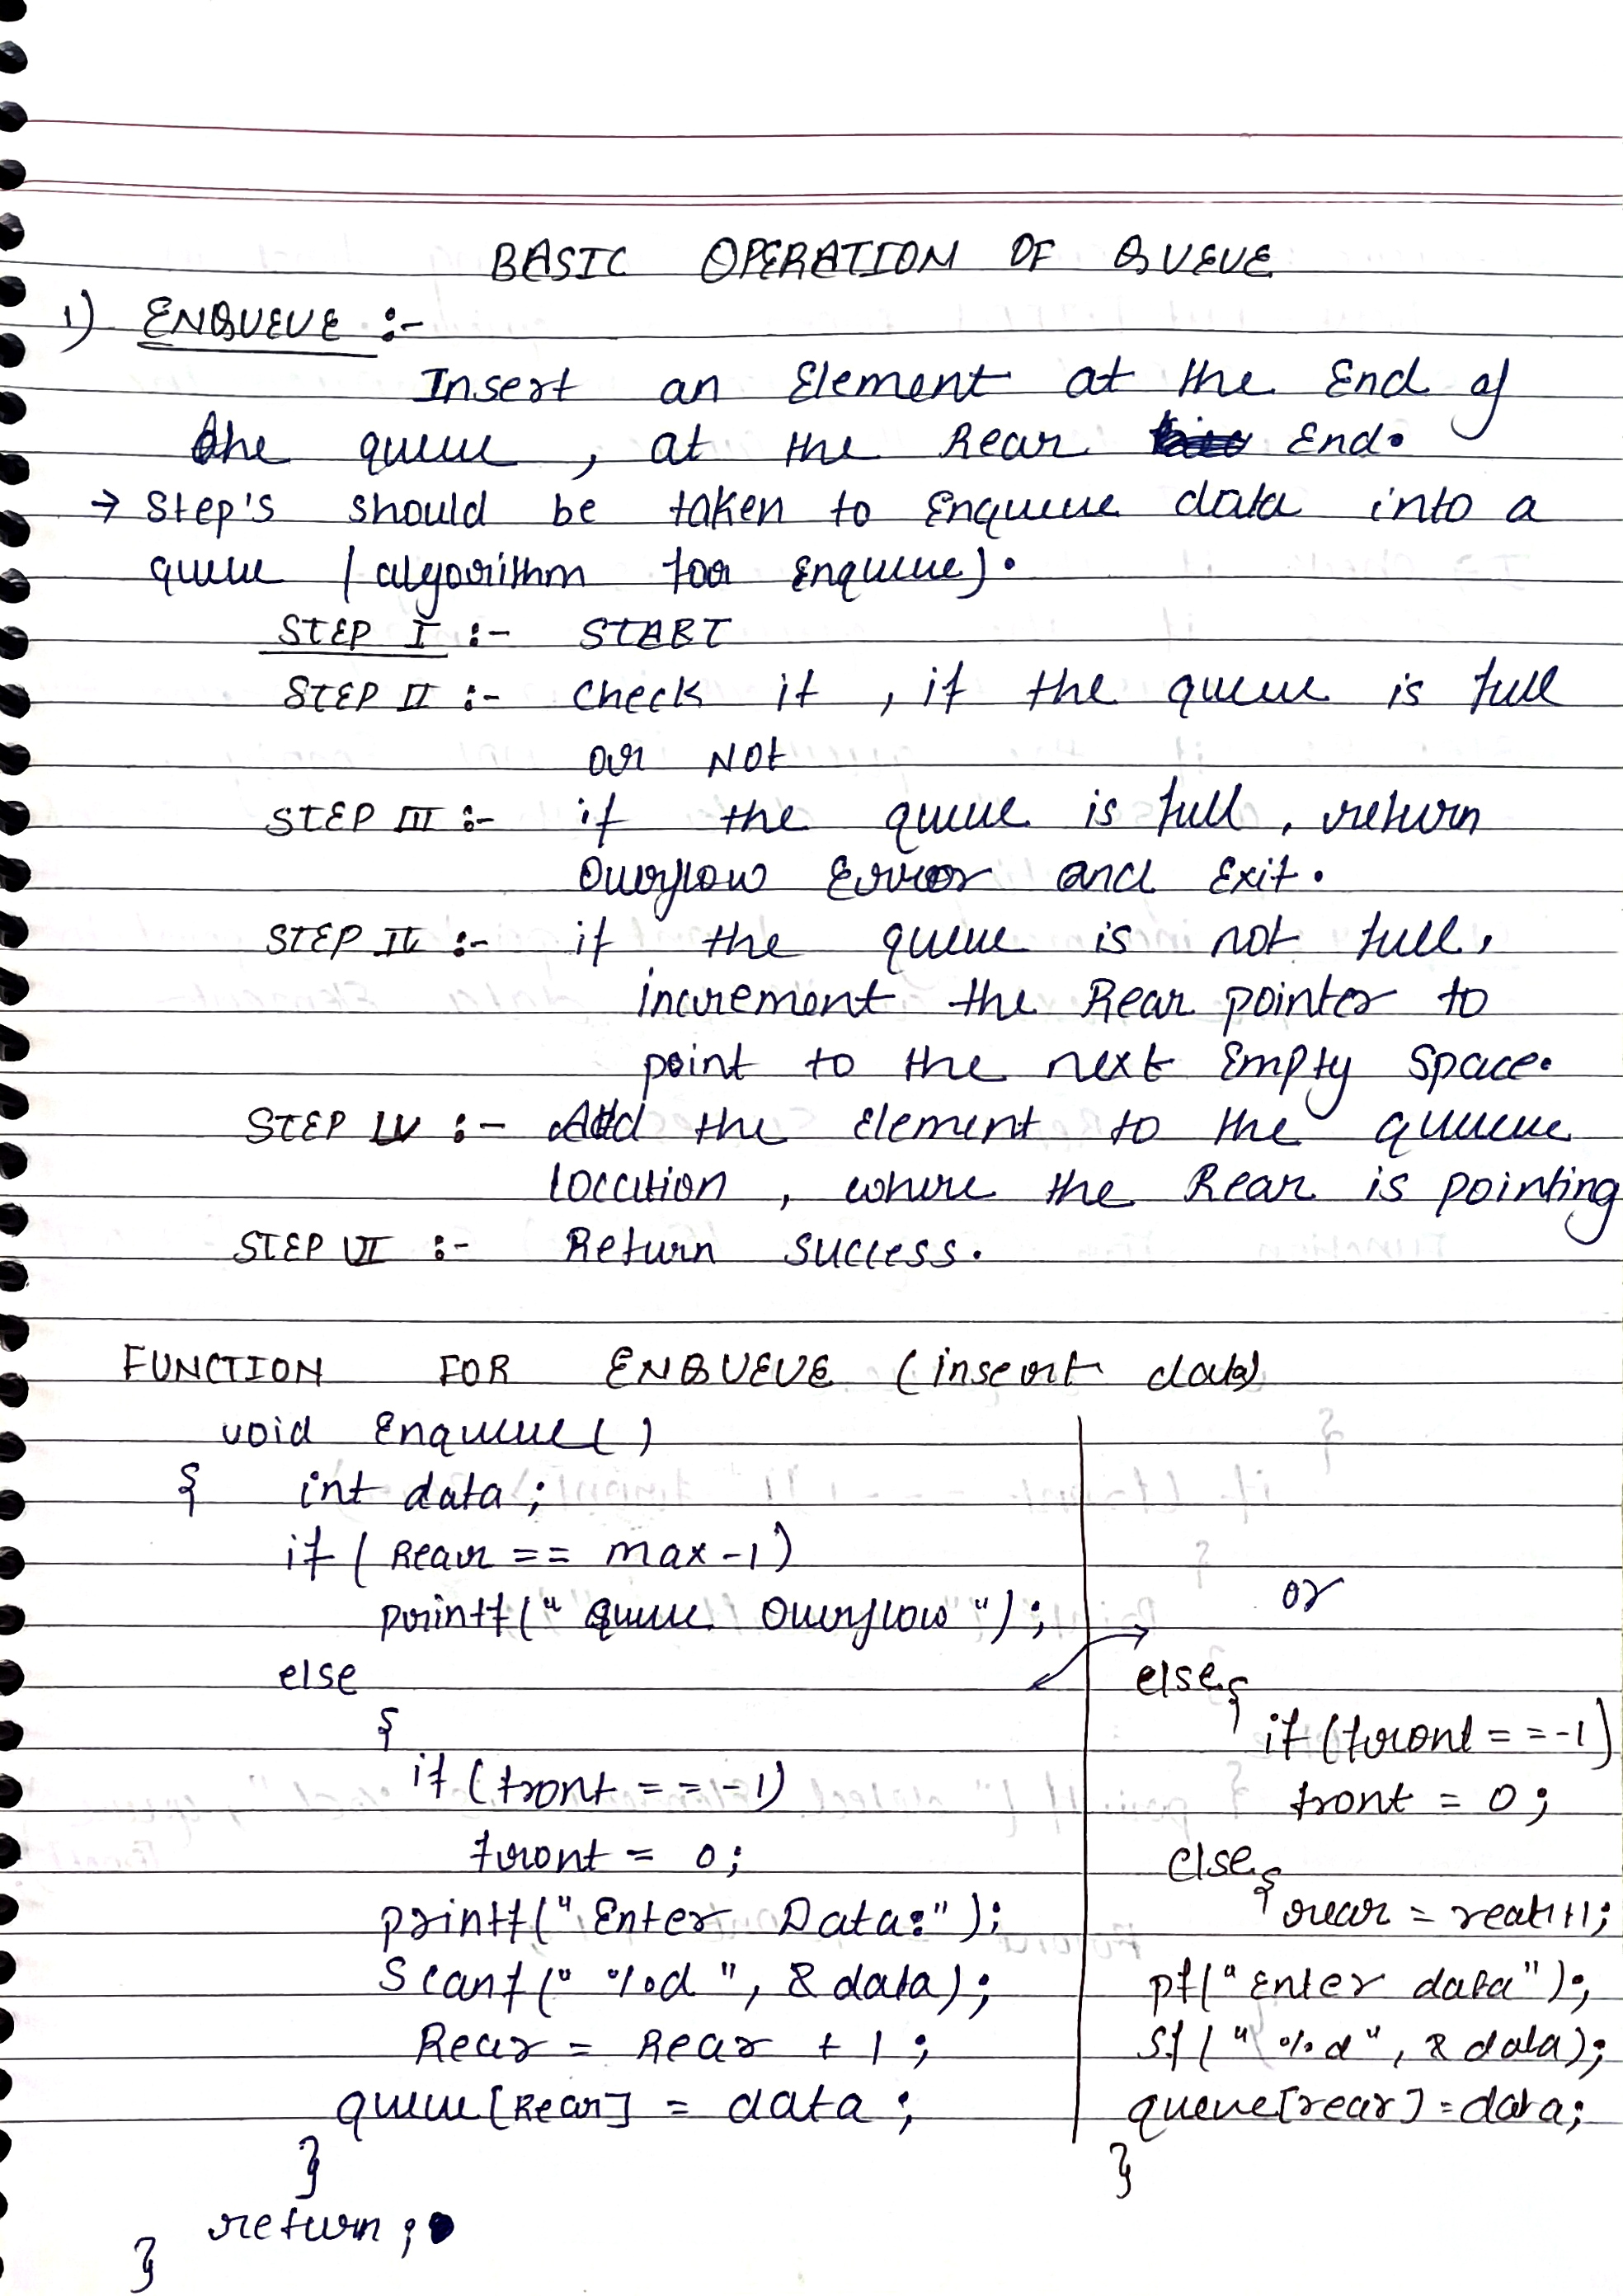 BASIC OPERATION OF QUEUE
1) ENQUEUE :-
Insert an Element at the End of
the queue, at the Rear End.
→ Step's should be taken to Enqueue data into a
queue (algorithm for Enqueue).
STEP I :- START
STEP II :- check it, if the queue is full
or NOt
STEP III :- if the queue is full, return
Overflow Error and Exit.
STEP IV :- if the queue is not full,
increment the Rear pointer to
point to the next Empty Space.
STEP V :- Add the element to the queue
location, where the Rear is pointing
STEP VI :- Return success.
FUNCTION FOR ENQUEUE (insert data)
void Enqueue()
{ int data;
if (Rear == max-1)
printf(" Queue Overflow ");
else
{
if (front == -1)
front = 0;
printf("Enter Data:");
Scanf(" %d ", &data);
Rear = Rear + 1;
queue[Rear] = data;
}
return;
}
or
else{
if (front == -1)
front = 0;
else{
rear = rear+1;
pf("Enter data");
Sf(" %d", &data);
queue[rear] = data;
}